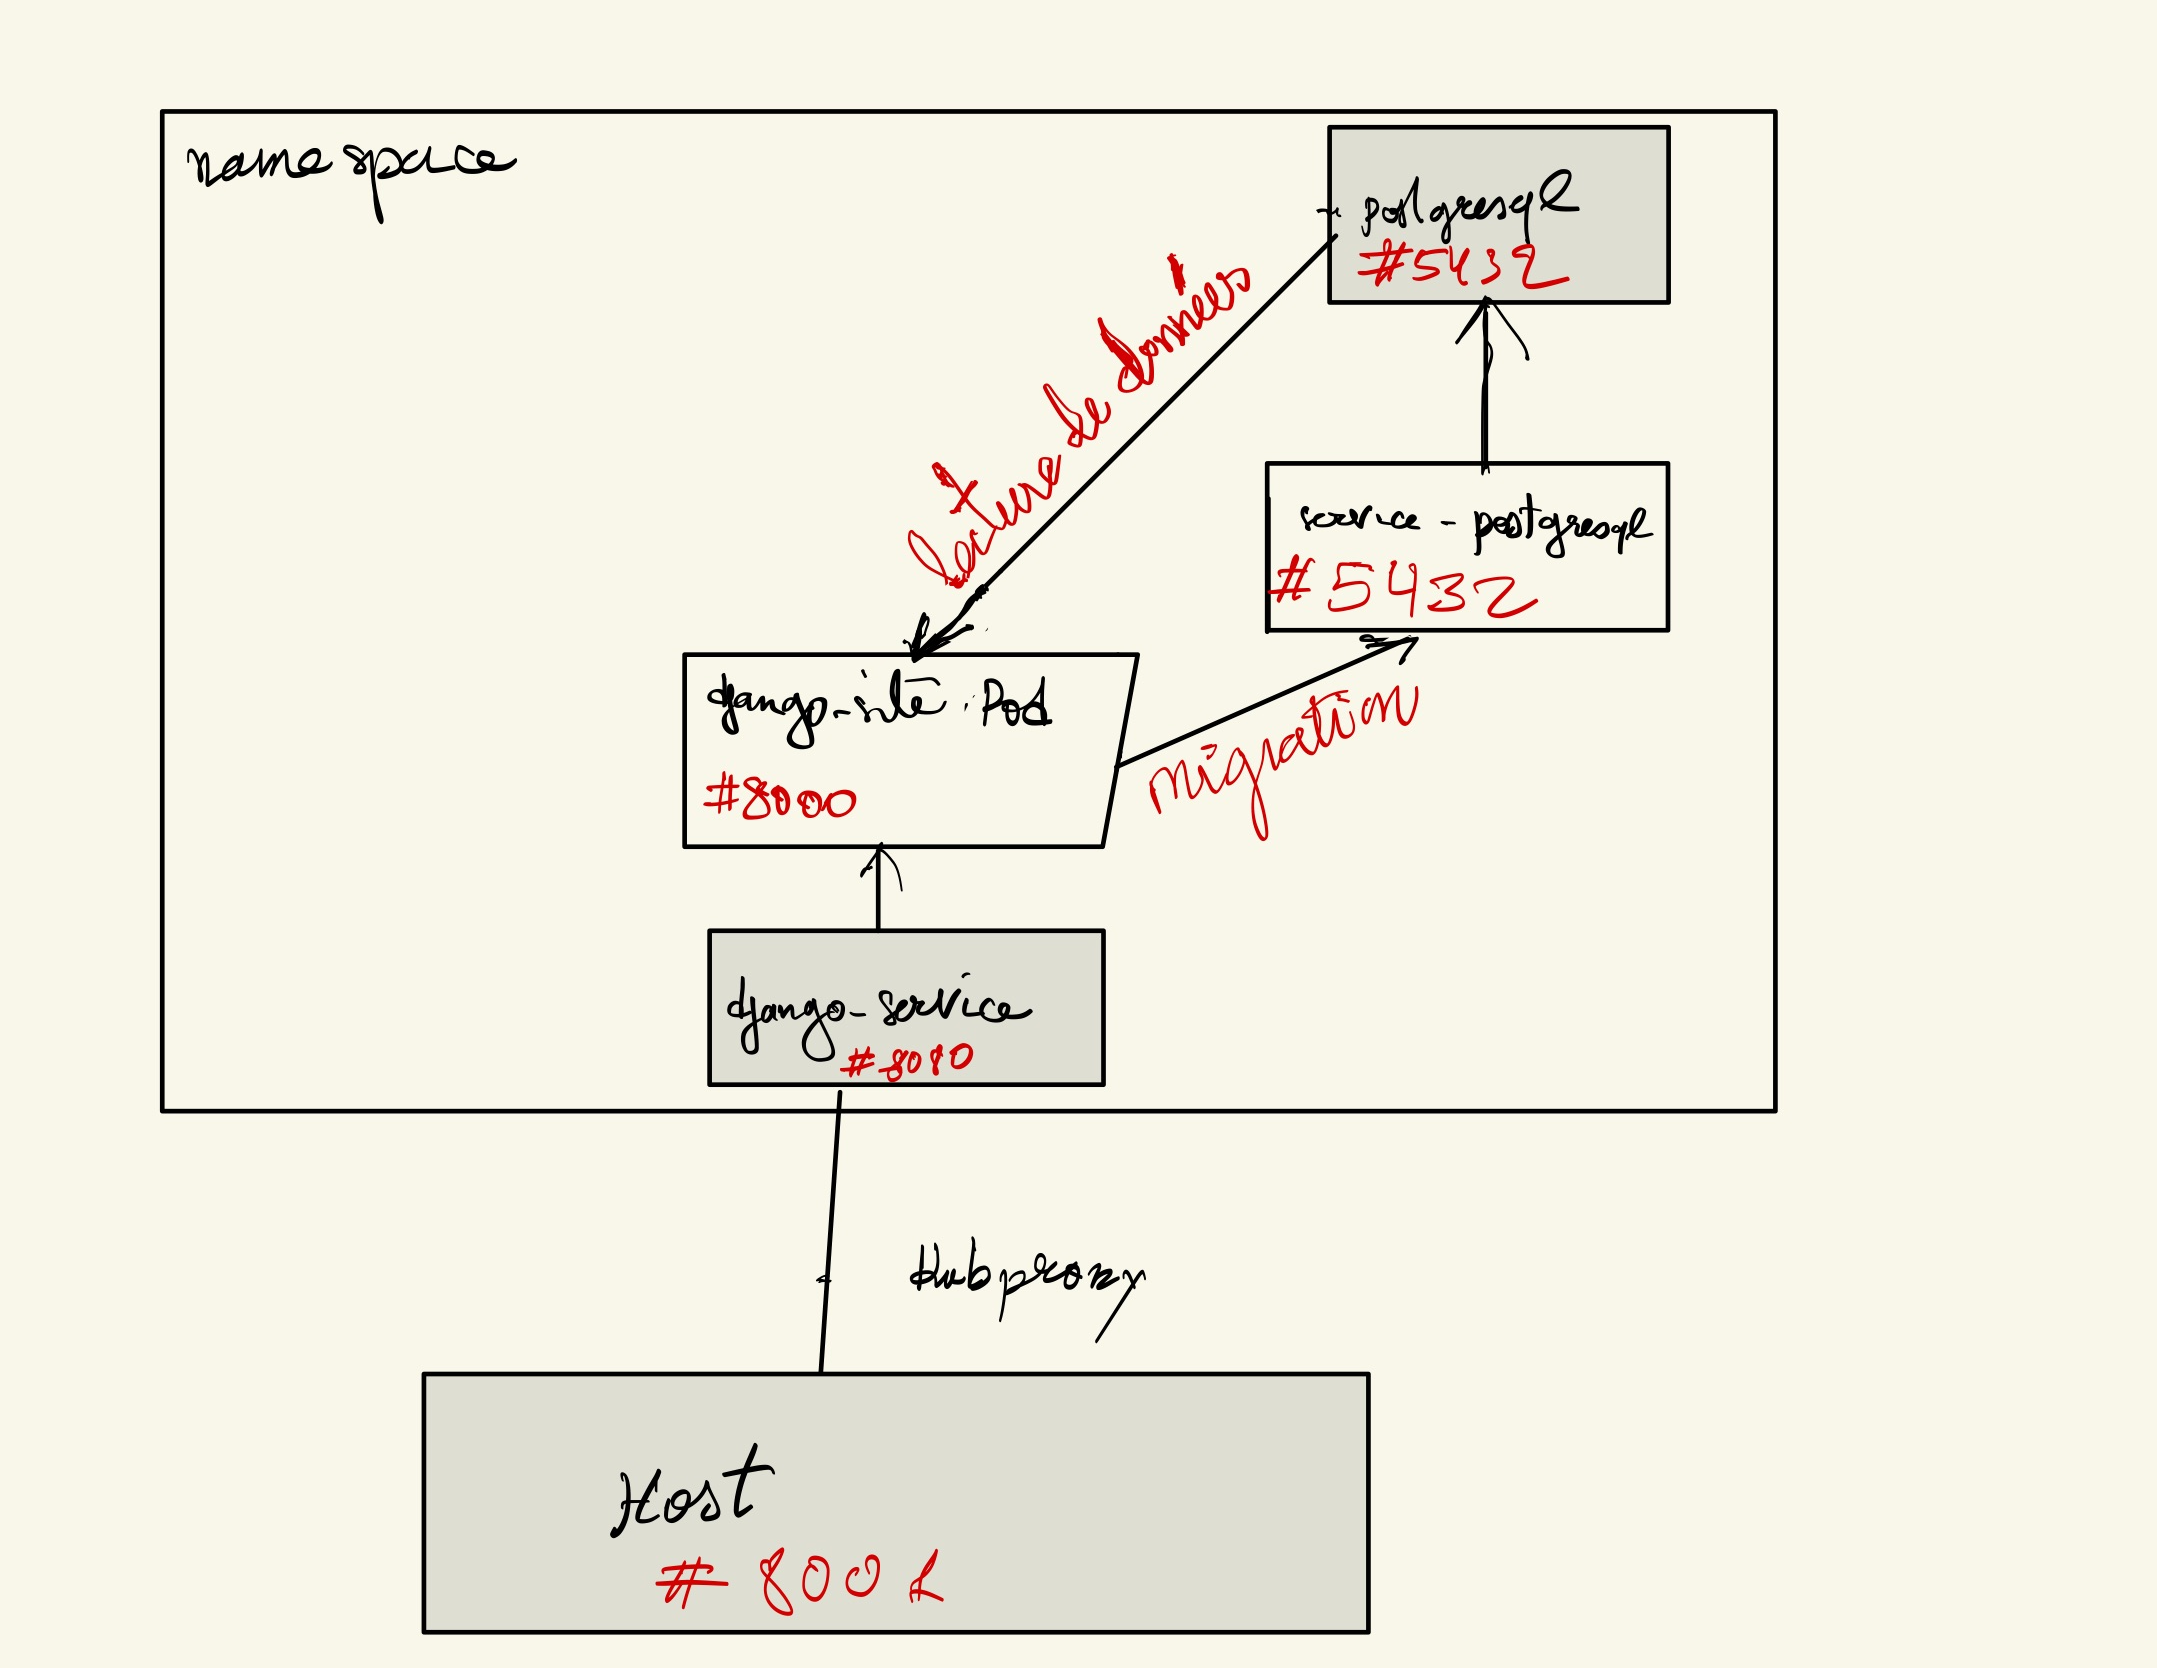 namespace
postgresql
#5432
Lecture de données
service-postgresql
#5432
django-site-Pod
#8000
migration
django-service
#8080
Kubproxy
Host
#8001